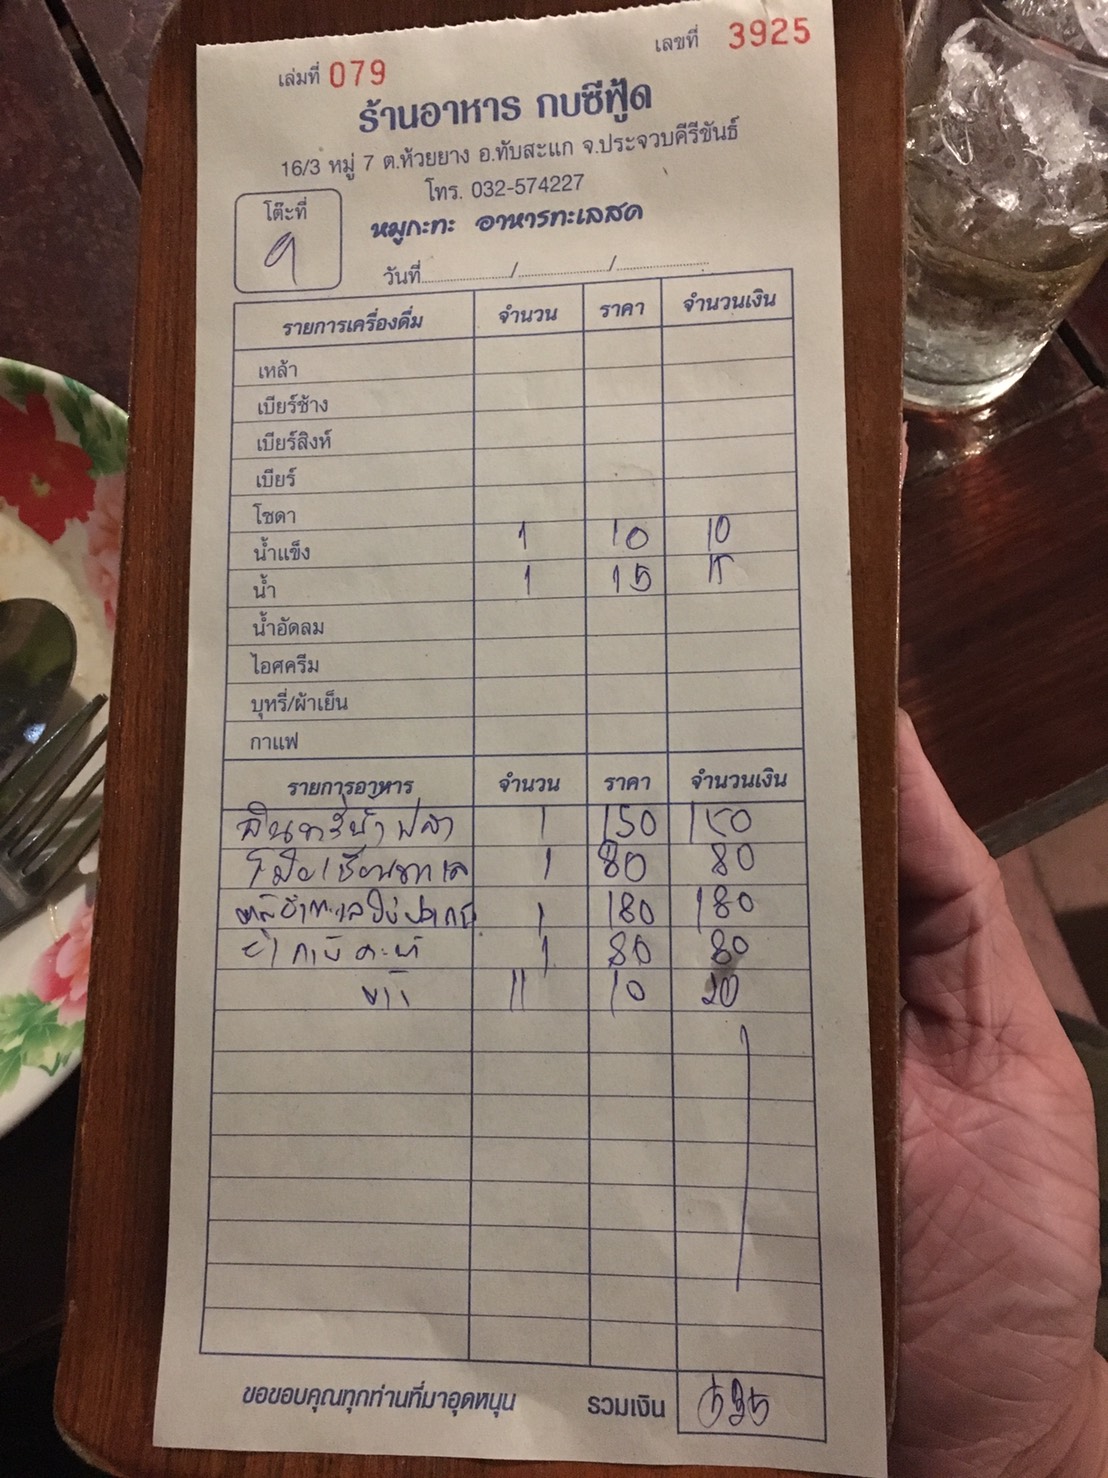 เล่มที่ 079 เลขที่ 3925
ร้านอาหาร กบซีฟู้ด
16/3 หมู่ 7 ต.ห้วยยาง อ.ทับสะแก จ.ประจวบคีรีขันธ์
โทร. 032-574227
หมูกะทะ อาหารทะเลสด
โต๊ะที่
9
วันที่ / /
รายการเครื่องดื่ม จำนวน ราคา จำนวนเงิน
เหล้า
เบียร์ช้าง
เบียร์สิงห์
เบียร์
โซดา
น้ำแข็ง 1 10 10
น้ำ 1 15 15
น้ำอัดลม
ไอศครีม
บุหรี่/ผ้าเย็น
กาแฟ
รายการอาหาร จำนวน ราคา จำนวนเงิน
อินทรีน้ำปลา 1 150 150
1 80 80
1 180 180
1 80 80
11 10 20
ขอขอบคุณทุกท่านที่มาอุดหนุน รวมเงิน 535